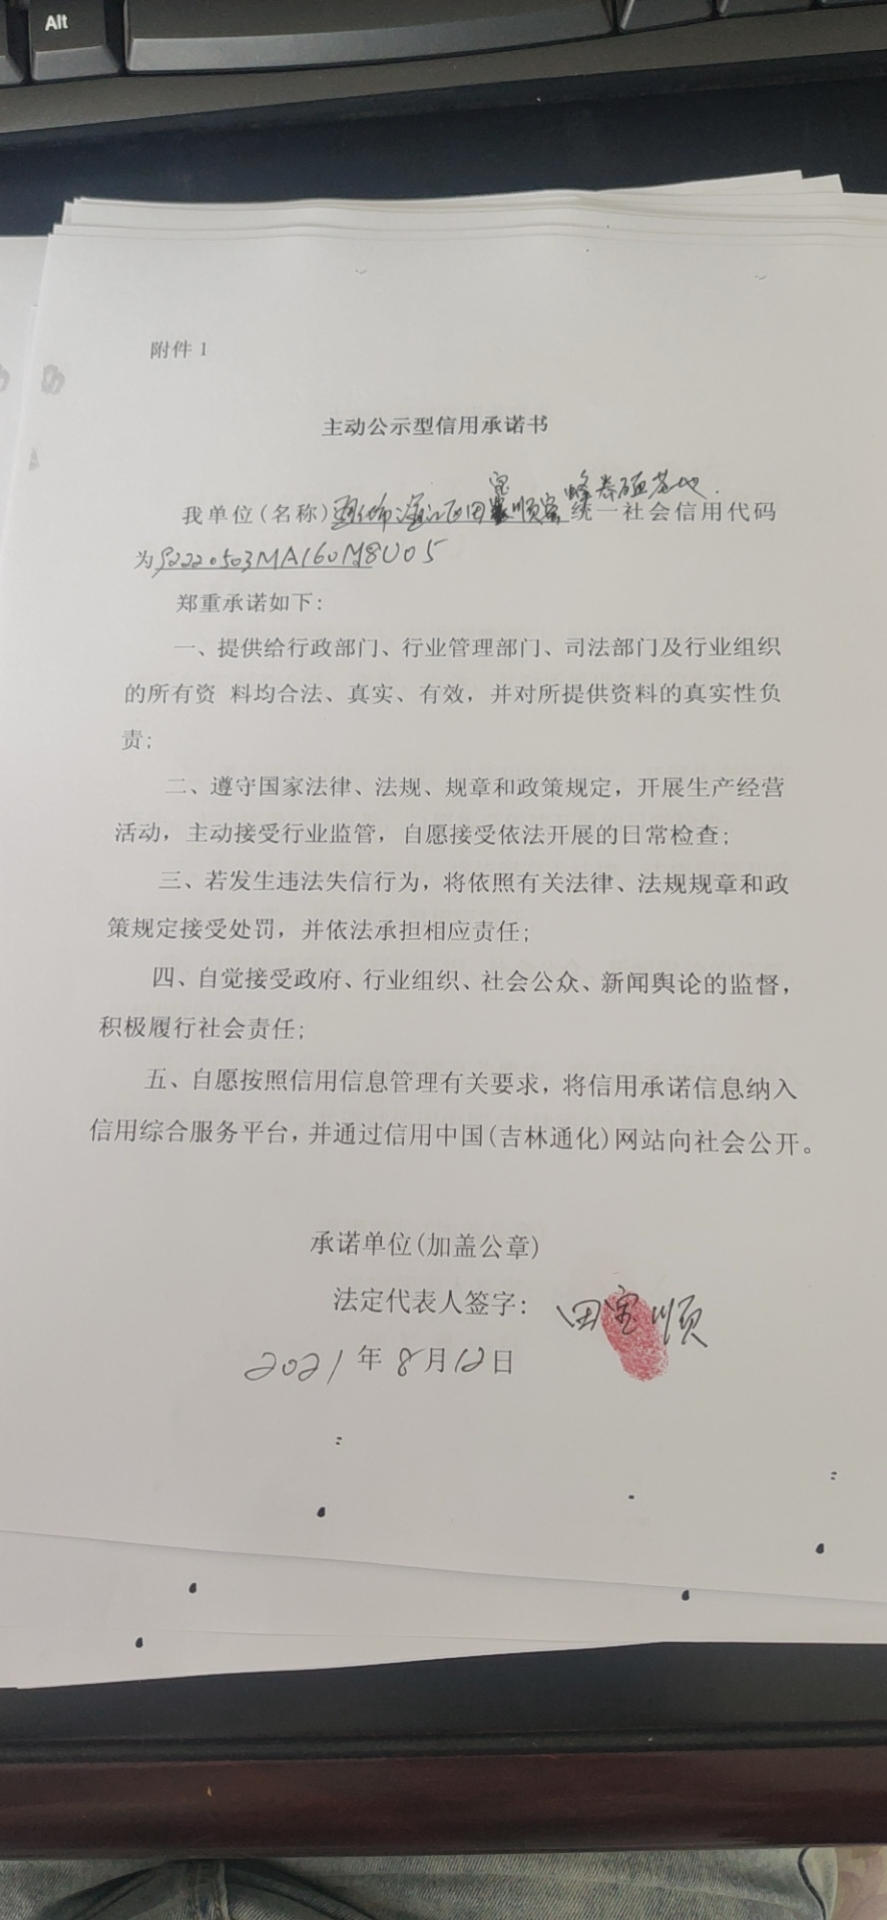 Alt
附件1
主动公示型信用承诺书
宝
我单位(名称)通化市二道江区田宝顺蜜蜂养殖基地 统一社会信用代码
为92220503MA160M8U05
郑重承诺如下:
一、提供给行政部门、行业管理部门、司法部门及行业组织
的所有资 料均合法、真实、有效，并对所提供资料的真实性负
责;
二、遵守国家法律、法规、规章和政策规定，开展生产经营
活动，主动接受行业监管，自愿接受依法开展的日常检查;
三、若发生违法失信行为，将依照有关法律、法规规章和政
策规定接受处罚，并依法承担相应责任;
四、自觉接受政府、行业组织、社会公众、新闻舆论的监督，
积极履行社会责任;
五、自愿按照信用信息管理有关要求，将信用承诺信息纳入
信用综合服务平台，并通过信用中国(吉林通化)网站向社会公开。
承诺单位(加盖公章)
法定代表人签字: 田宝顺
2021年8月12日